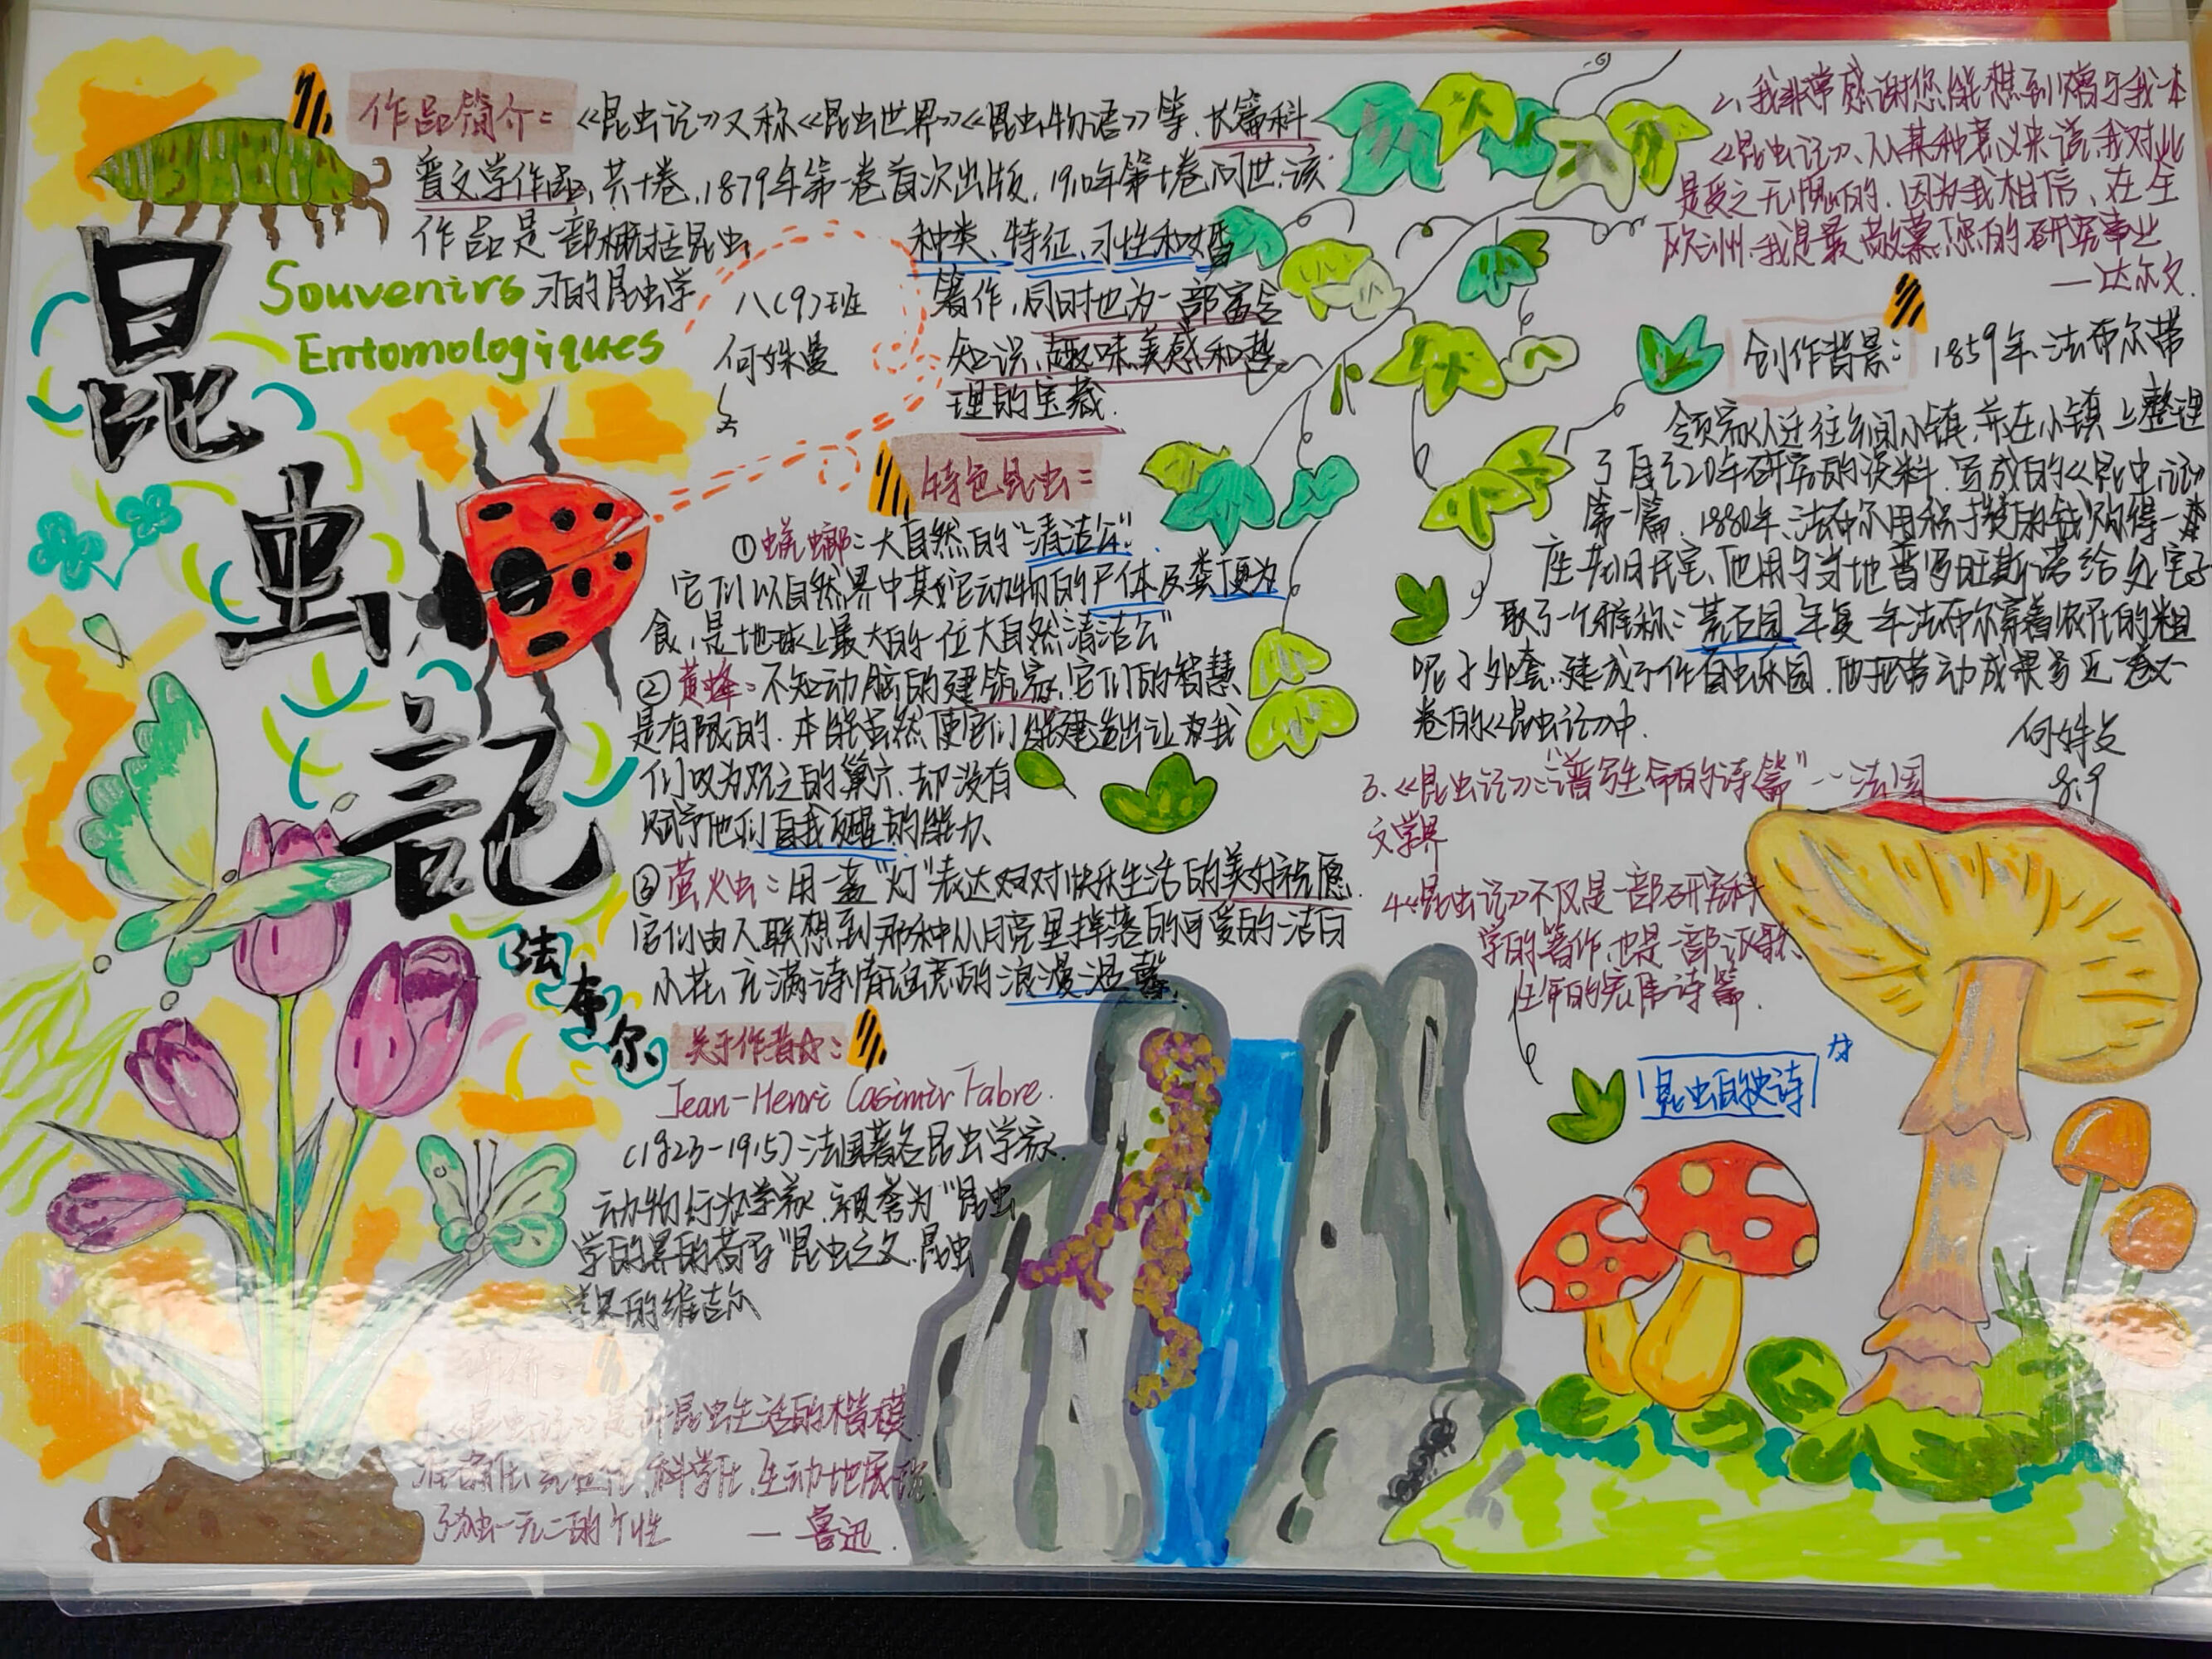 昆虫記
Souvenirs
Entomologiques
法布尔
作品简介:《昆虫记》又称《昆虫世界》《昆虫物语》等,长篇科
普文学作品,共十卷,1879年第一卷首次出版,1910年第十卷问世,该
作品是一部概括昆虫
种类、特征、习性和婚
习的昆虫学
著作,同时也为一部富含
知识、趣味美感和哲
理的宝藏.
八(9)班
何姝曼
特色昆虫:
①蜣螂:大自然的“清洁公”
它们以自然界中其它动物的尸体及粪便为
食,是地球上最大的一位大自然清洁公”
②黄蜂:不知动脑的建筑家,它们的智慧
是有限的.本能虽然使它们能建造出让我
们叹为观之的巢穴,却没有
赋予他们自我醒的能力、
③萤火虫:用一盏“灯”表达对快乐生活的美好祝愿.
它们由人联想到那种从月亮里掉落的可爱的洁白
小花,充满诗情的浪漫温馨.
关于作者:
Jean-Henri Casimir Fabre.
(1823-1915)法国著名昆虫学家.
动物行为学家,被誉为“昆虫
学的界的荷马”昆虫之父.昆虫
学界的维吉尔
昆虫生活的楷模.
科学化、生动地展现
了独一无二的个性
— 鲁迅.
2、我非常感谢您能想到赠予我一本
《昆虫记》、从某种意义来说,我对此
是受之无愧的.因为我相信、在生
欧洲,我是最敬慕您的研究事业
—达尔文.
创作背景: 1859年,法布尔带
领家人迁往乡间小镇,并在小镇上整理
了自己20年研究的资料,写成的《昆虫记》
第一篇,1880年,法布尔用积攒的钱购得一
座老旧民宅,他用当地普罗旺斯语给处宅子
取了一个雅称:荒石园 年复一年法布尔穿着农民的粗
呢子外套,建成了一作百虫乐园.他把劳动成果写进一卷又一
卷的《昆虫记》中.
8:9
3、《昆虫记》:“谱写生命的诗篇”--法国
文学界
4《昆虫记》不仅是一部研究科
学的著作,也是一部讴歌、
生命的宏伟诗篇.
昆虫的史诗